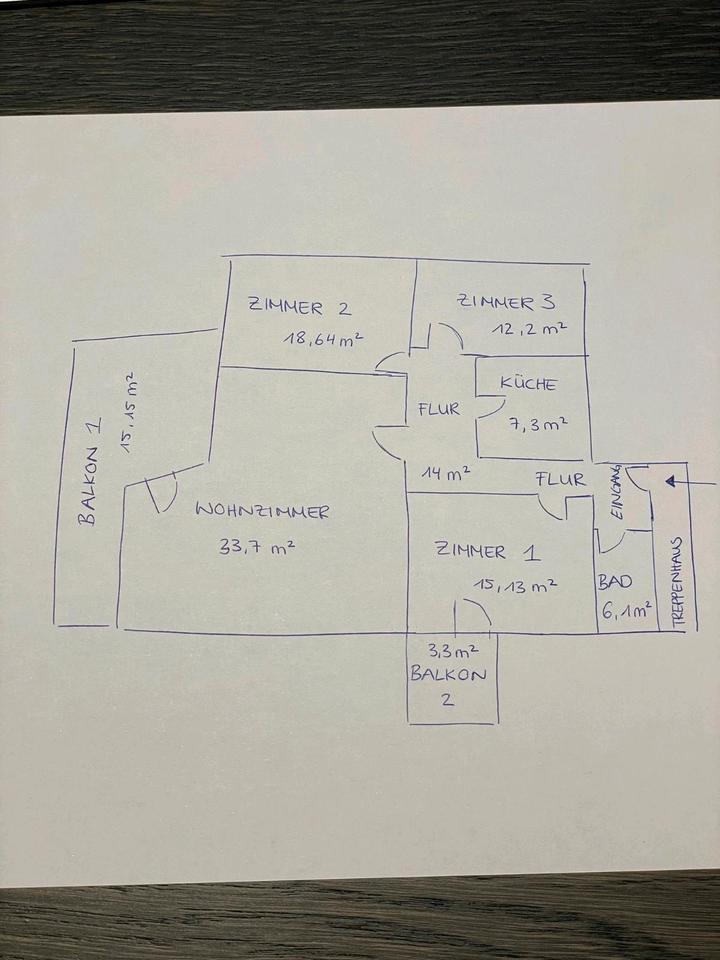 ZIMMER 2
18,64 m²
ZIMMER 3
12,2 m²
BALKON 1
15,15 m²
FLUR
KÜCHE
7,3 m²
14 m²
FLUR
EINGANG
WOHNZIMMER
33,7 m²
ZIMMER 1
15,13 m²
BAD
6,1 m²
TREPPENHAUS
3,3 m²
BALKON
2